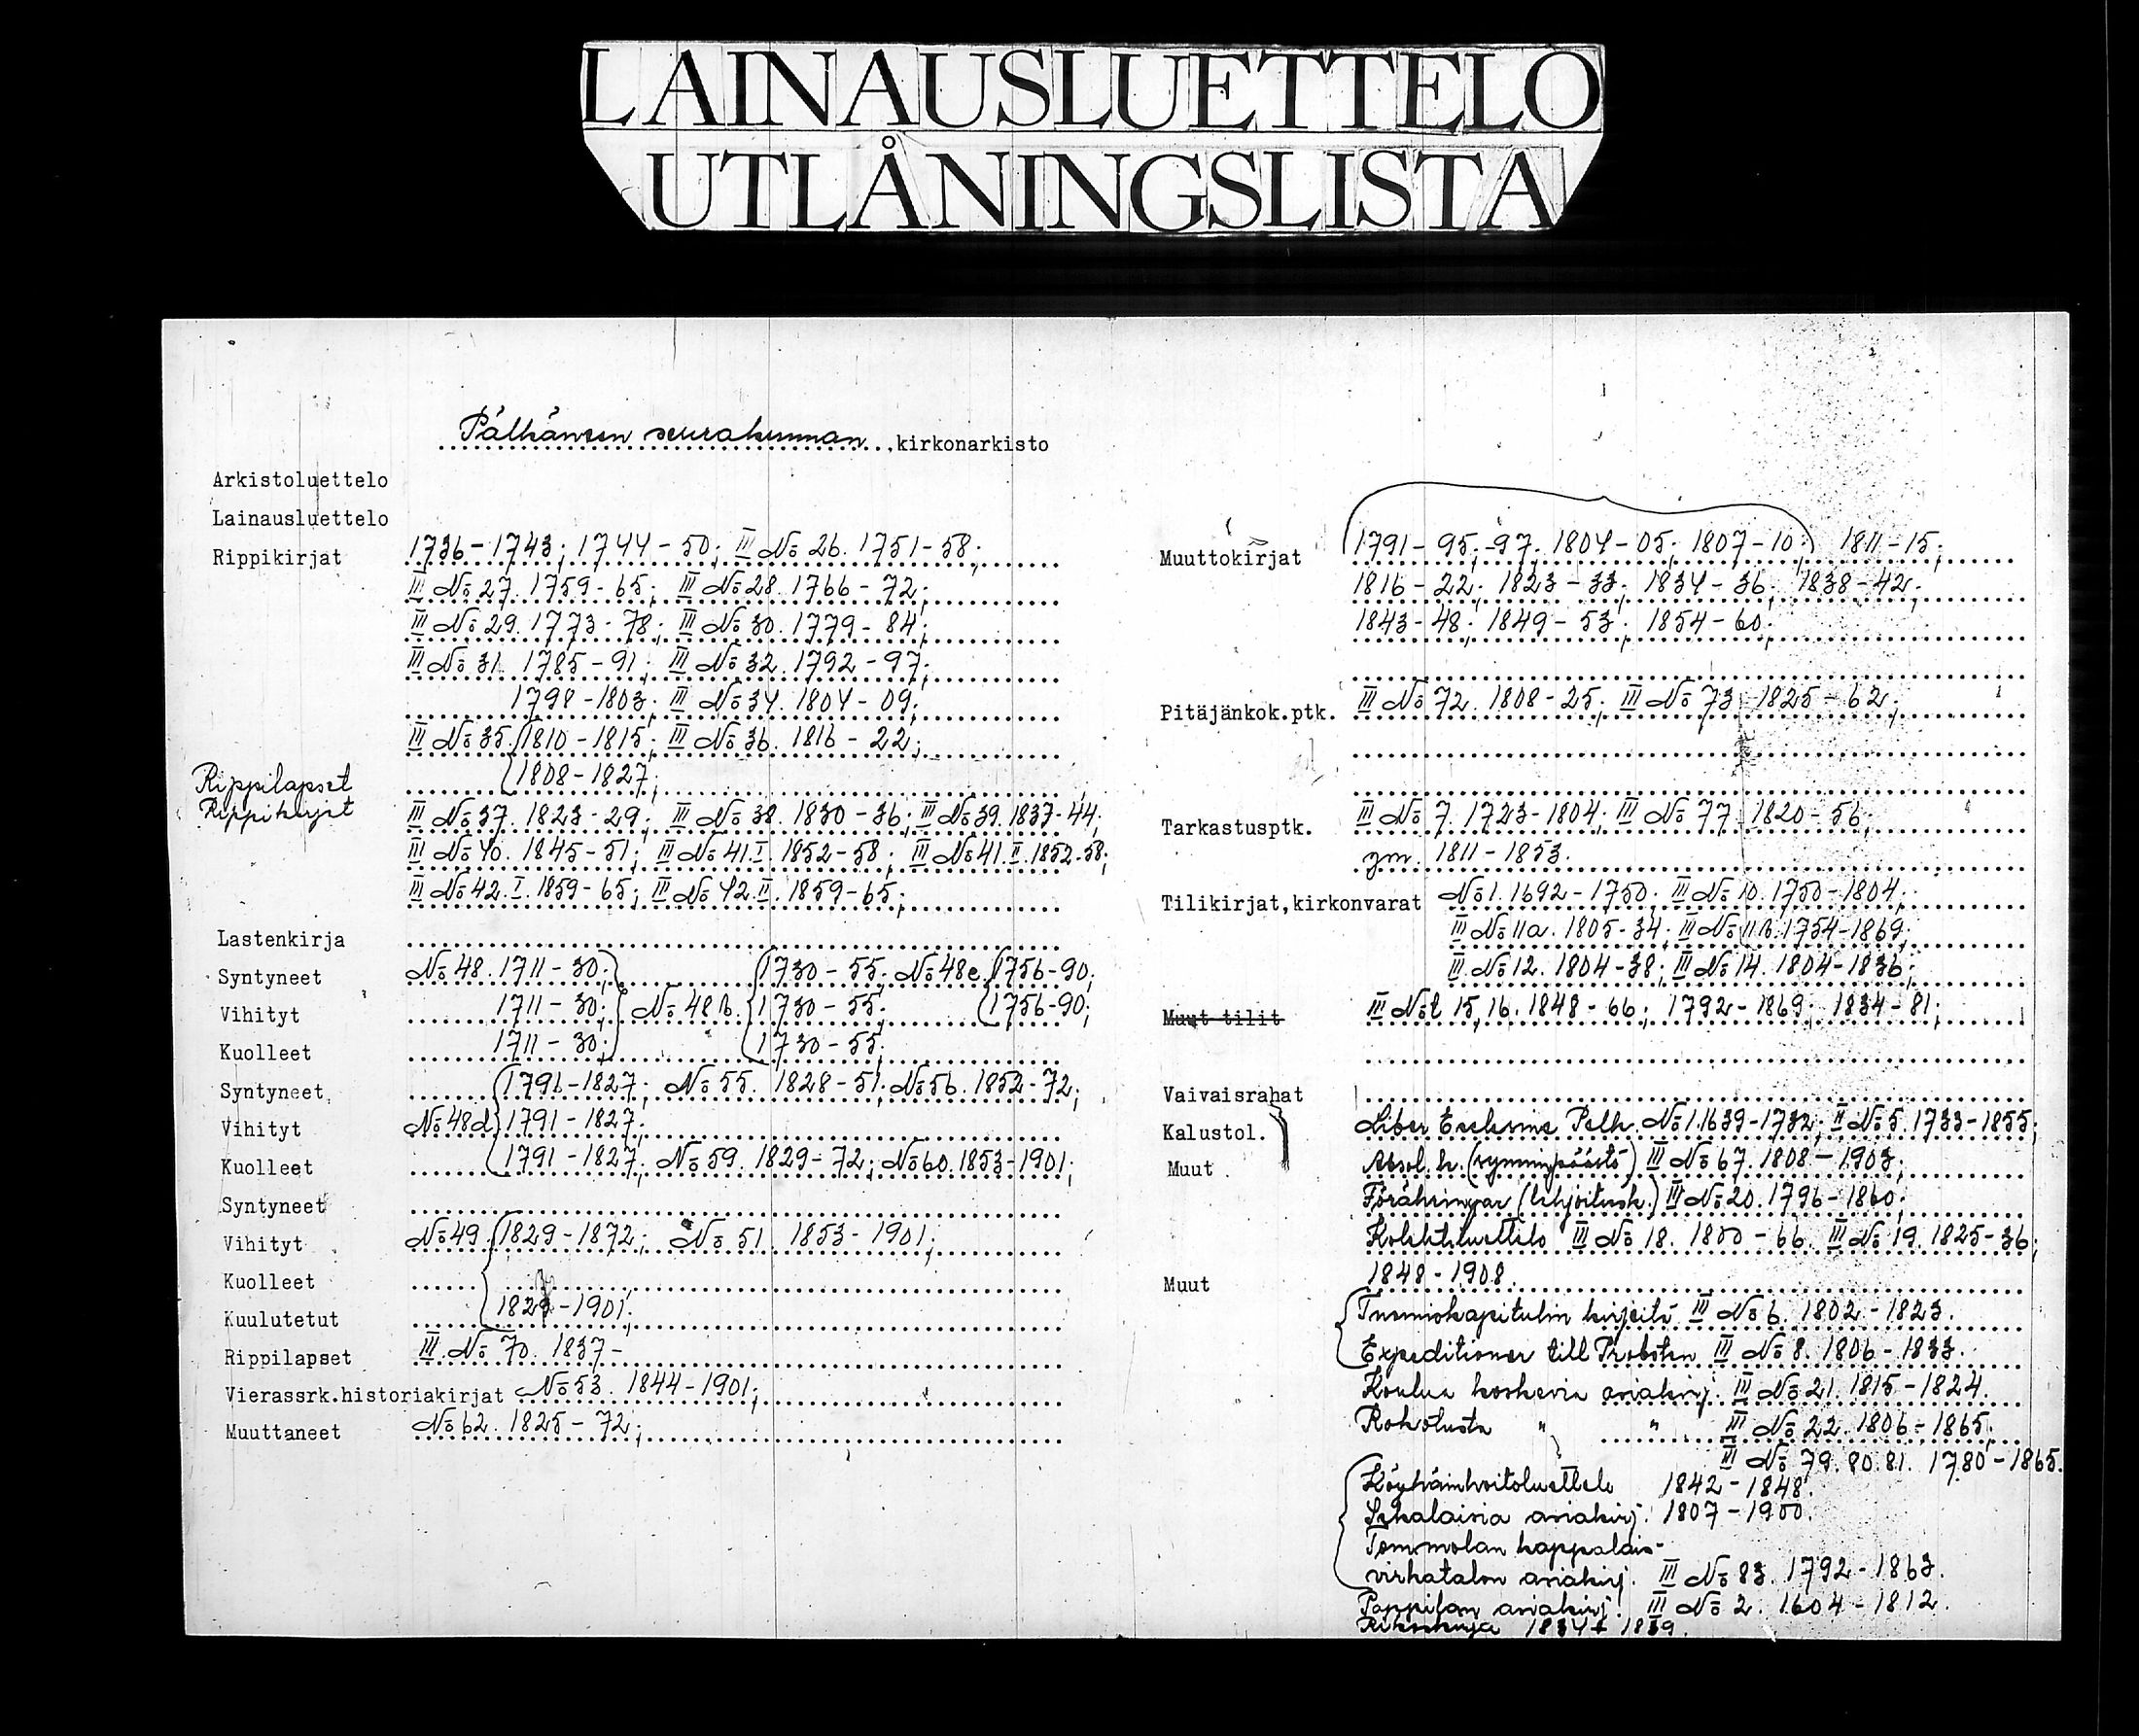 LAINAUSLUETTELO
UTLÅNINGSLISTA
Pälkäneen seurakunnan kirkonarkisto
Arkistoluettelo
Lainausluettelo
Rippikirjat 1736-1743; 1744-50; III No 26. 1751-58;
III No 27. 1759-65; III No 28. 1766-72;
III No 29. 1773-78; III No 30. 1779-84;
III No 31. 1785-91; III No 32. 1792-97;
1798-1803; III No 34. 1804-09;
III No 35. 1810-1815; III No 36. 1816-22;
Rippilapset 1808-1827;
Rippikirjat III No 37. 1823-29; III No 38. 1830-36; III No 39. 1837-44;
III No 40. 1845-51; III No 41.I. 1852-58; III No 41.II. 1852-58;
III No 42.I. 1859-65; III No 42.II. 1859-65;
Lastenkirja
Syntyneet No 48. 1711-30; 1730-55; No 48c. 1756-90;
Vihityt 1711-30; No 48b. 1730-55; 1756-90;
Kuolleet 1711-30; 1730-55;
Syntyneet 1791-1827; No 55. 1828-51; No 56. 1852-72;
Vihityt No 48d 1791-1827;
Kuolleet 1791-1827; No 59. 1829-72; No 60. 1853-1901;
Syntyneet
Vihityt No 49. 1829-1872; No 51. 1853-1901;
Kuolleet
Kuulutetut 1829-1901;
Rippilapset III No 70. 1837-
Vierassrk.historiakirjat No 53. 1844-1901;
Muuttaneet No 62. 1825-72;
Muuttokirjat 1791-95; -97. 1804-05; 1807-10; 1811-15;
1816-22; 1823-33; 1834-36; 1838-42;
1843-48; 1849-53; 1854-60;
Pitäjänkok.ptk. III No 72. 1808-25; III No 73. 1825-62;
Tarkastusptk. III No 7. 1723-1804; III No 77. 1820-56;
ym. 1811-1853.
Tilikirjat,kirkonvarat No 1. 1692-1750; III No 10. 1750-1804;
III No 11a. 1805-34; III No 11b. 1754-1869;
III No 12. 1804-38; III No 14. 1804-1836;
Muut tilit III No: t 15, 16. 1848-66; 1792-1869; 1834-81;
Vaivaisrahat
Kalustol. Liber Ecclesiae Pelk. No 1. 1639-1732; II No 5. 1733-1855;
Muut Absol. k. (synninpäästö) III No 67. 1808-1903;
Föräringar (lahjoitusk.) III No 20. 1796-1860;
Kolehtiluettelo III No 18. 1800-66. III No 19. 1825-36;
Muut 1848-1908.
Tuomiokapitulin kirjeitä III No 6. 1802-1823.
Expeditioner till Probsten III No 8. 1806-1833.
Koulua koskevia asiakirj. III No 21. 1815-1824.
Rokotusta " " III No 22. 1806-1865;
III No 79. 80. 81. 1780-1865.
Köyhäinhoitoluettelo 1842-1848.
Sekalaisia asiakirj. 1807-1900.
Tommolan kappalais-
virkatalon asiakirj. III No 83. 1792-1863.
Pappilan asiakirj. III No 2. 1604-1812.
Rikoskirja 1834 + 1839.